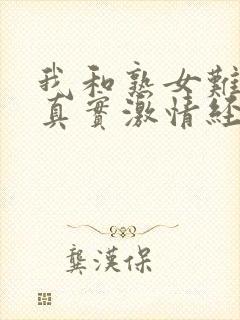 我和熟女難
真實激情經
龔漢保